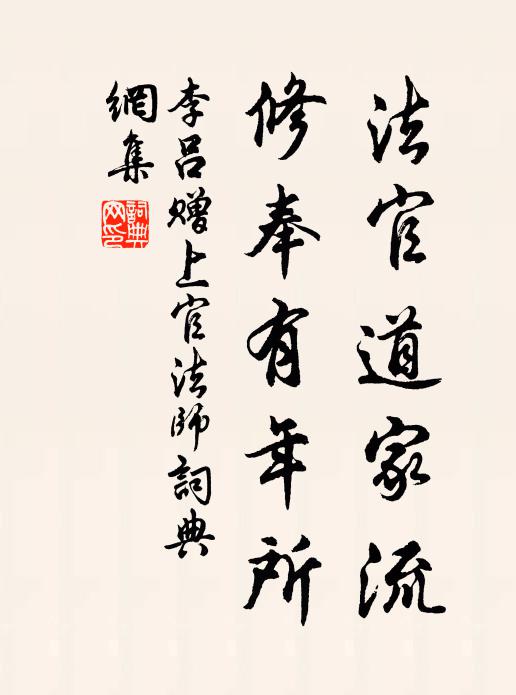 法官道家流
修奉有年所
李呂贈上官法師詞典
網集
詞典網印